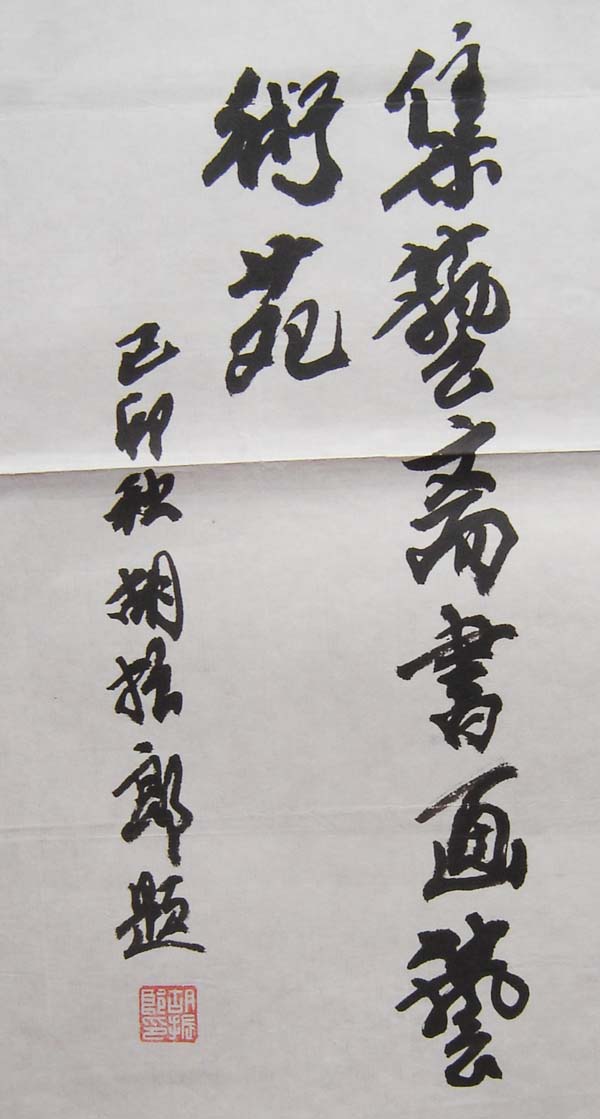 集藝斋書画藝
術苑
己卯秋胡振郎題
胡振郎印